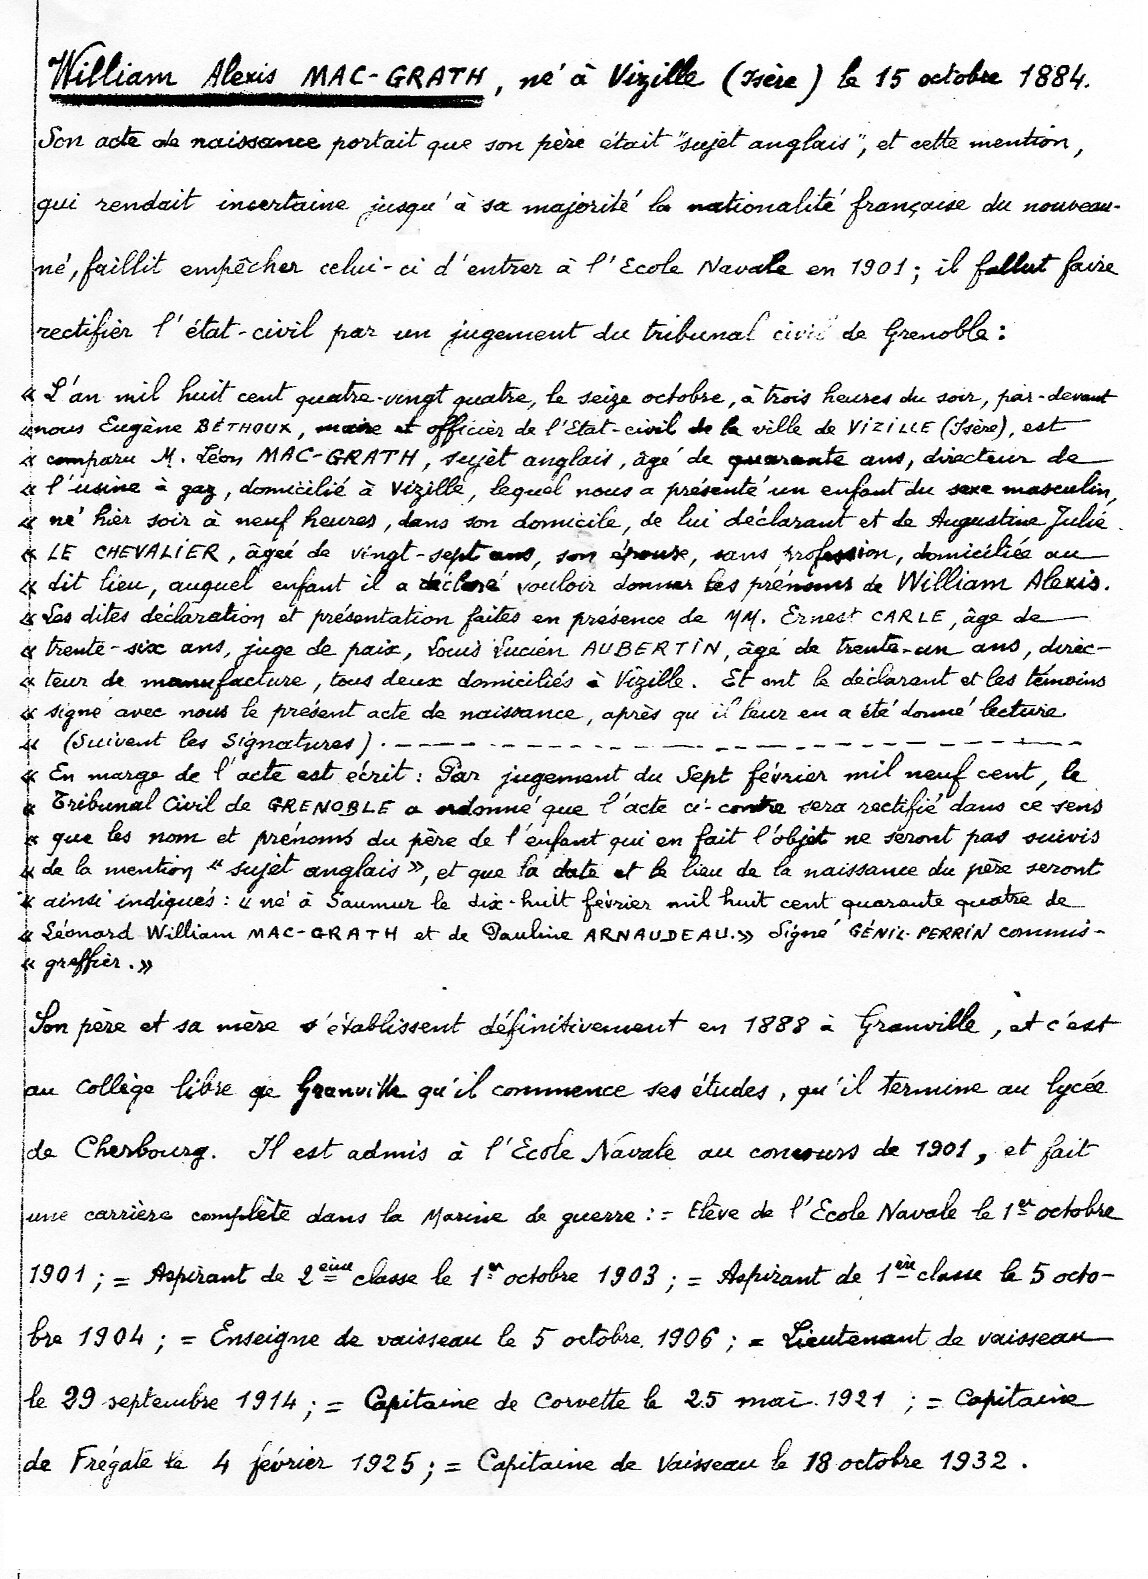 William Alexis MAC-GRATH, né à Vizille (Isère) le 15 octobre 1884.
Son acte de naissance portait que son père était "sujet anglais", et cette mention,
qui rendait incertaine jusqu'à sa majorité la nationalité française du nouveau-
né, faillit empêcher celui-ci d'entrer à l'Ecole Navale en 1901 ; il fallut faire
rectifier l'état-civil par un jugement du tribunal civil de Grenoble :
« L'an mil huit cent quatre-vingt quatre, le seize octobre, à trois heures du soir, par-devant
« nous Eugène BÉTHOUX, maire et officier de l'Etat-civil de la ville de VIZILLE (Isère), est
« comparu M. Léon MAC-GRATH, sujet anglais, âgé de quarante ans, directeur de
« l'usine à gaz, domicilié à Vizille, lequel nous a présenté un enfant du sexe masculin,
« né hier soir à neuf heures, dans son domicile, de lui déclarant et de Augustine Julie
« LE CHEVALIER, âgée de vingt-sept ans, son épouse, sans profession, domiciliée au
« dit lieu, auquel enfant il a déclaré vouloir donner les prénoms de William Alexis.
« Les dites déclaration et présentation faites en présence de MM. Ernest CARLE, âge de
« trente-six ans, juge de paix, Louis Lucien AUBERTIN, âgé de trente-un ans, direc-
« teur de manufacture, tous deux domiciliés à Vizille. Et ont le déclarant et les témoins
« signé avec nous le présent acte de naissance, après qu'il leur en a été donné lecture
« (Suivent les Signatures).
« En marge de l'acte est écrit : Par jugement du Sept février mil neuf cent, le
« Tribunal Civil de GRENOBLE a ordonné que l'acte ci-contre sera rectifié dans ce sens
« que les nom et prénoms du père de l'enfant qui en fait l'objet ne seront pas suivis
« de la mention « sujet anglais », et que la date et le lieu de la naissance du père seront
« ainsi indiqués : « né à Saumur le dix-huit février mil huit cent quarante quatre de
« Léonard William MAC-GRATH et de Pauline ARNAUDEAU. » Signé GÉNIL-PERRIN commis-
« greffier. »
Son père et sa mère s'établissent définitivement en 1888 à Granville, et c'est
au collège libre de Granville qu'il commence ses études, qu'il termine au lycée
de Cherbourg. Il est admis à l'Ecole Navale au concours de 1901, et fait
une carrière complète dans la Marine de guerre : = Elève de l'Ecole Navale le 1er octobre
1901 ; = Aspirant de 2ème classe le 1er octobre 1903 ; = Aspirant de 1ère classe le 5 octo-
bre 1904 ; = Enseigne de vaisseau le 5 octobre 1906 ; = Lieutenant de vaisseau
le 29 septembre 1914 ; = Capitaine de Corvette le 25 mai 1921 ; = Capitaine
de Frégate le 4 février 1925 ; = Capitaine de Vaisseau le 18 octobre 1932.